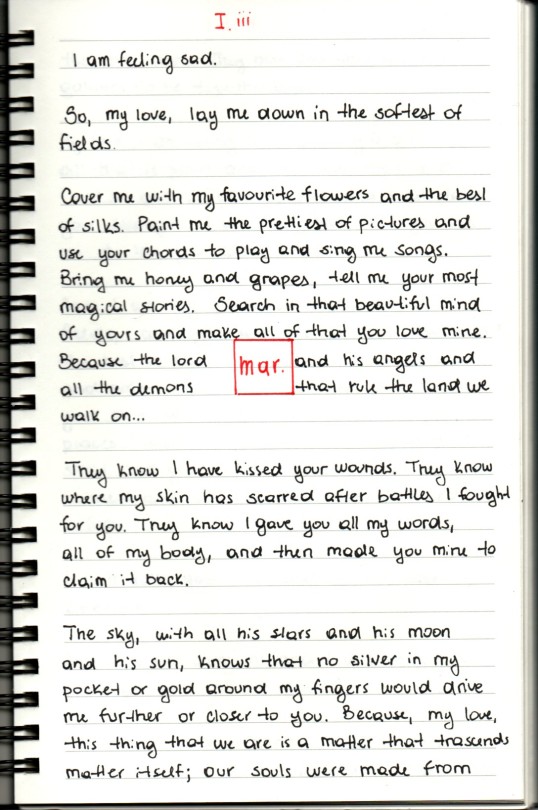 I. iii
I am feeling sad.
So, my love, lay me down in the softest of
fields.
Cover me with my favourite flowers and the best
of silks. Paint me the prettiest of pictures and
use your chords to play and sing me songs.
Bring me honey and grapes, tell me your most
magical stories. Search in that beautiful mind
of yours and make all of that you love mine.
Because the lord mar. and his angels and
all the demons that rule the land we
walk on...
They know I have kissed your wounds. They know
where my skin has scarred after battles I fought
for you. They know I gave you all my words,
all of my body, and then made you mine to
claim it back.
The sky, with all his stars and his moon
and his sun, knows that no silver in my
pocket or gold around my fingers would drive
me further or closer to you. Because, my love,
this thing that we are is a matter that trascends
matter itself; our souls were made from